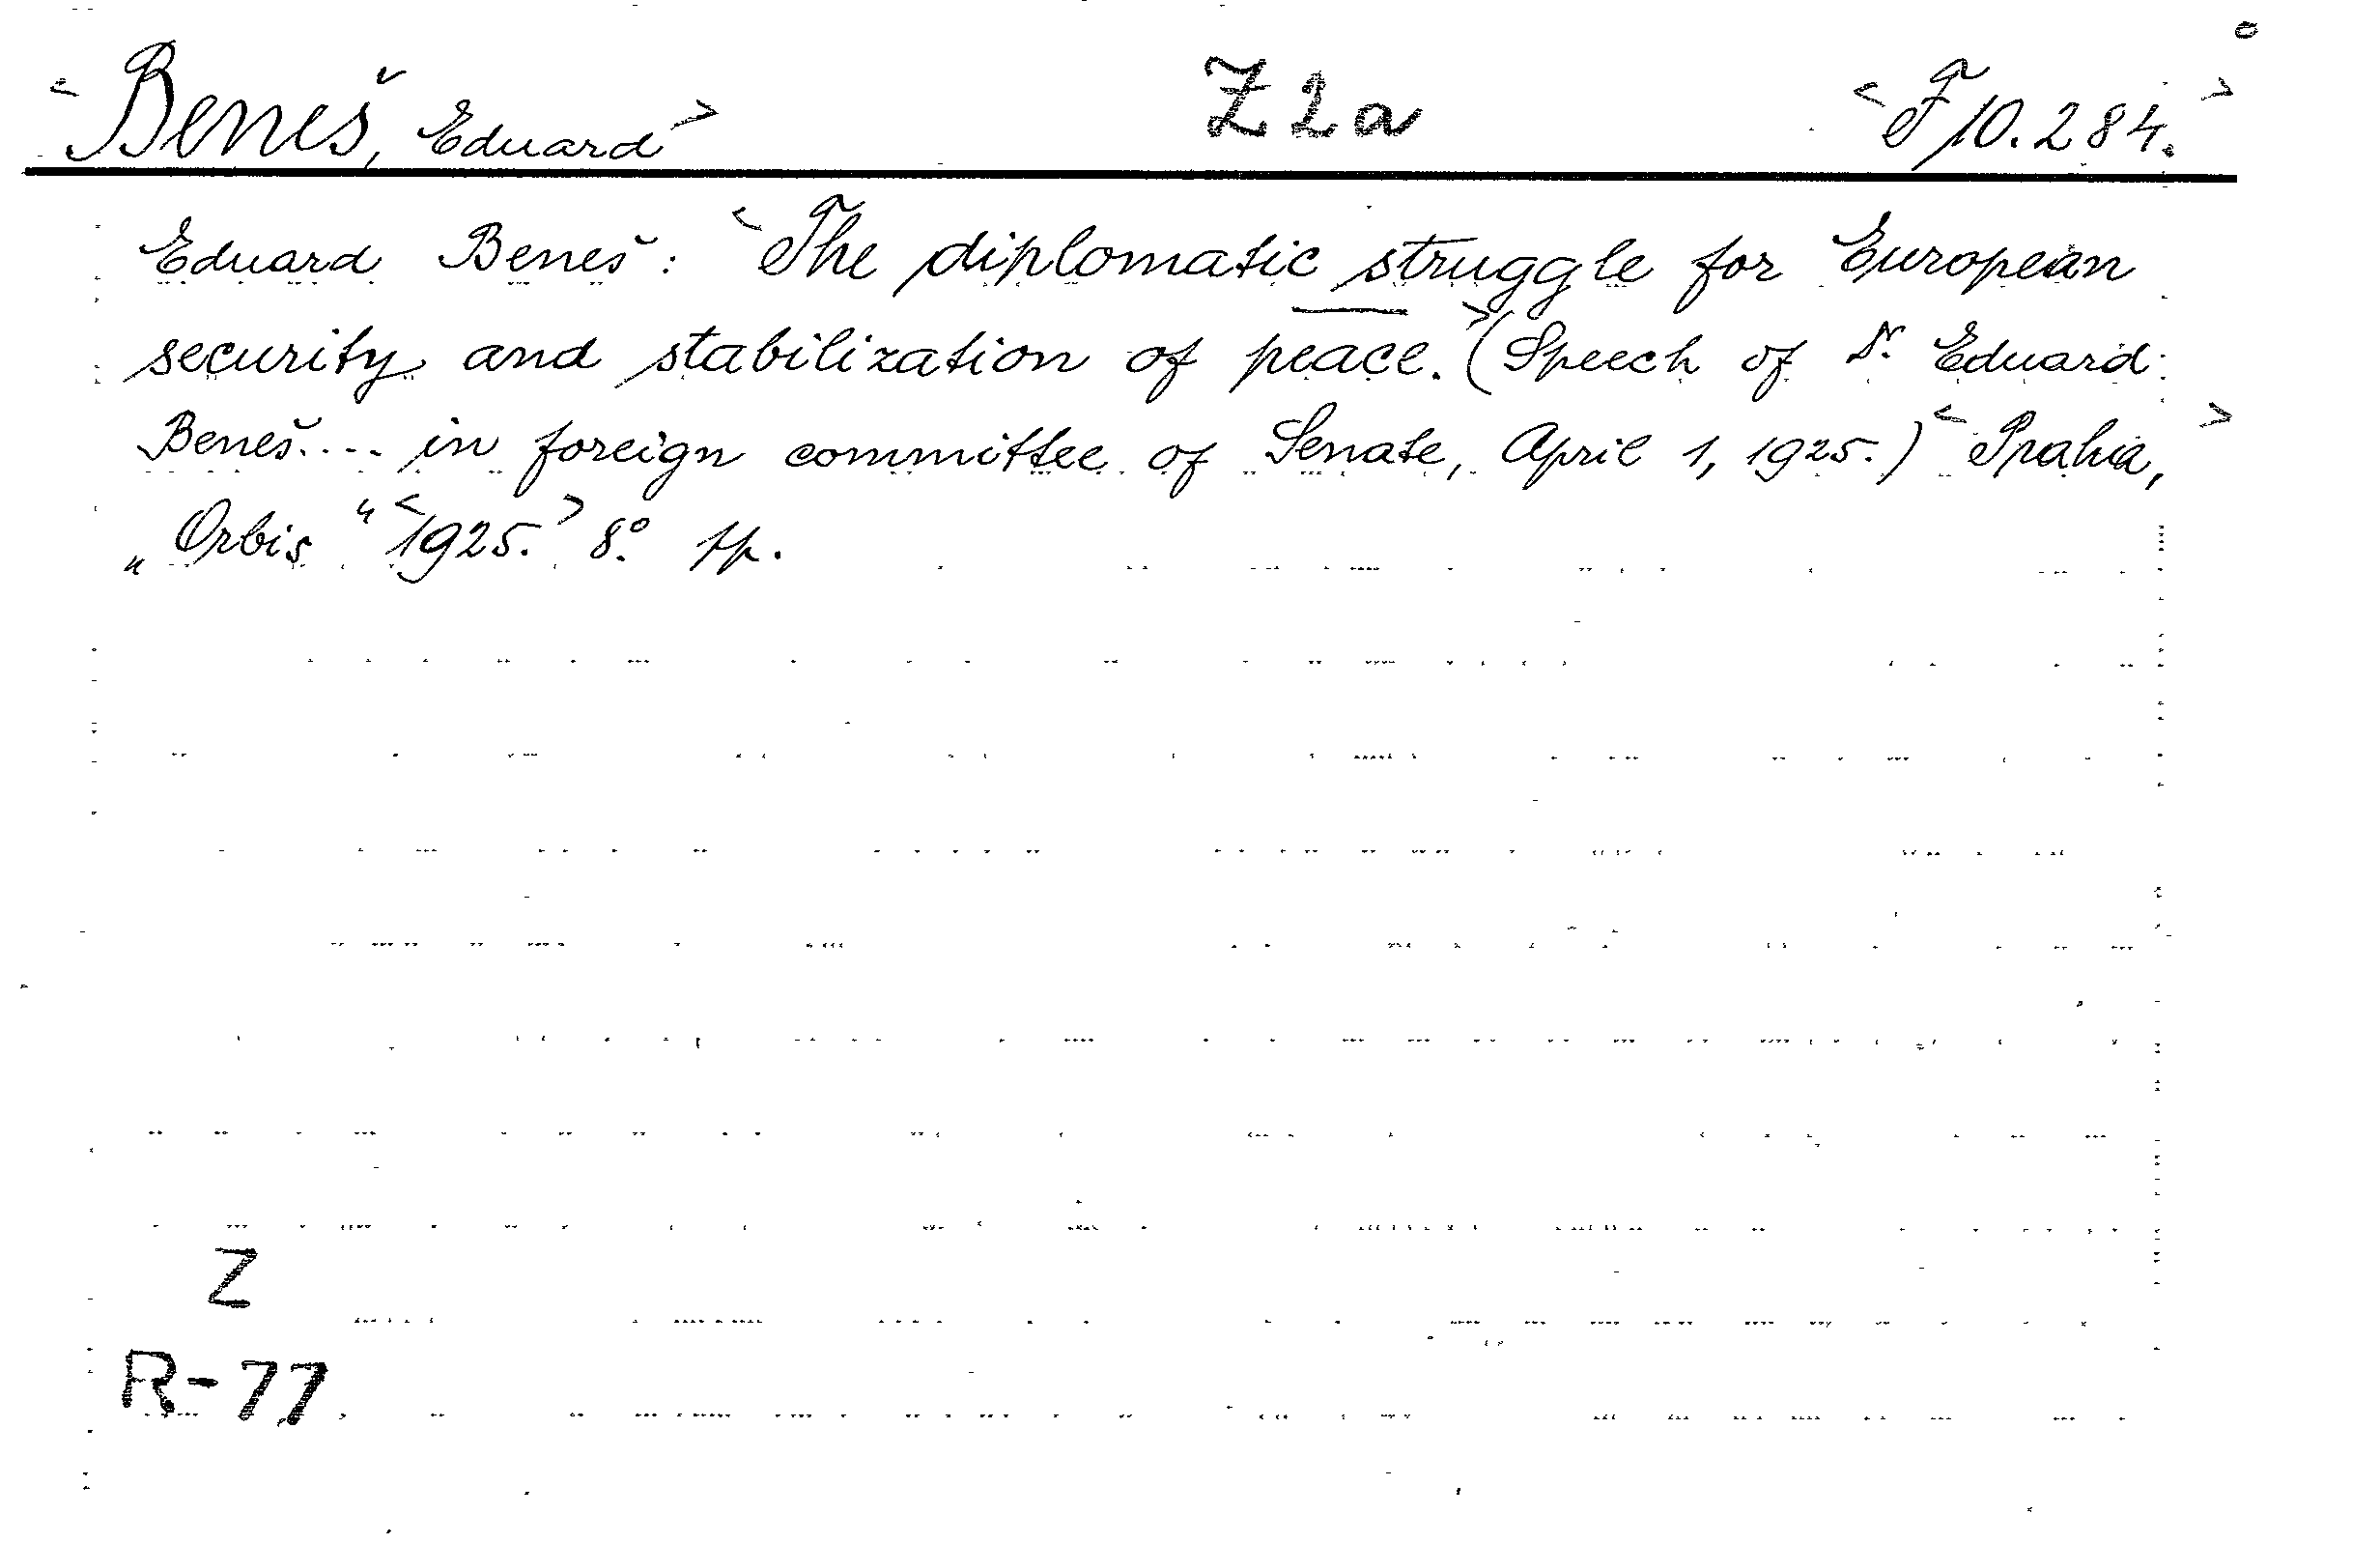 <Beneš, Eduard> Z2a <F 10.284.>
Eduard Beneš: <The diplomatic struggle for European
security and stabilization of peace.> (Speech of Dr. Eduard
Beneš.... in foreign committee of Senate, April 1, 1925.) <Praha,>
„Orbis“ <1925.> 8°.
Z
R-77